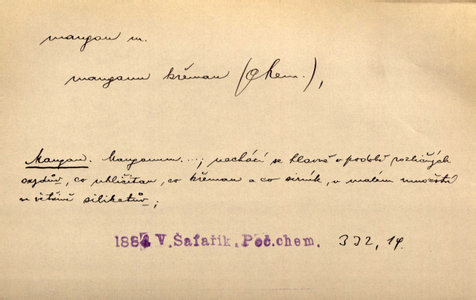 mangan m.
manganu křeman (Chem.),
Mangan. Manganum...; nachází se hlavně v podobě rozličných
oxydův, co uhličitan, co křeman a co sirník, v malém množství
v silikatův;
1861 V. Šafařík, Poč.chem. 332, 14.